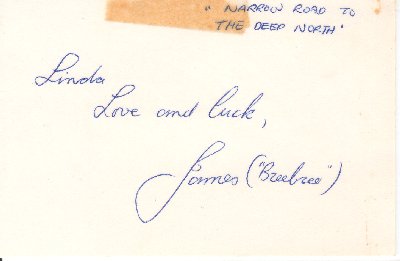 "NARROW ROAD TO
THE DEEP NORTH"
Linda
Love and luck,
James ("Breebree")